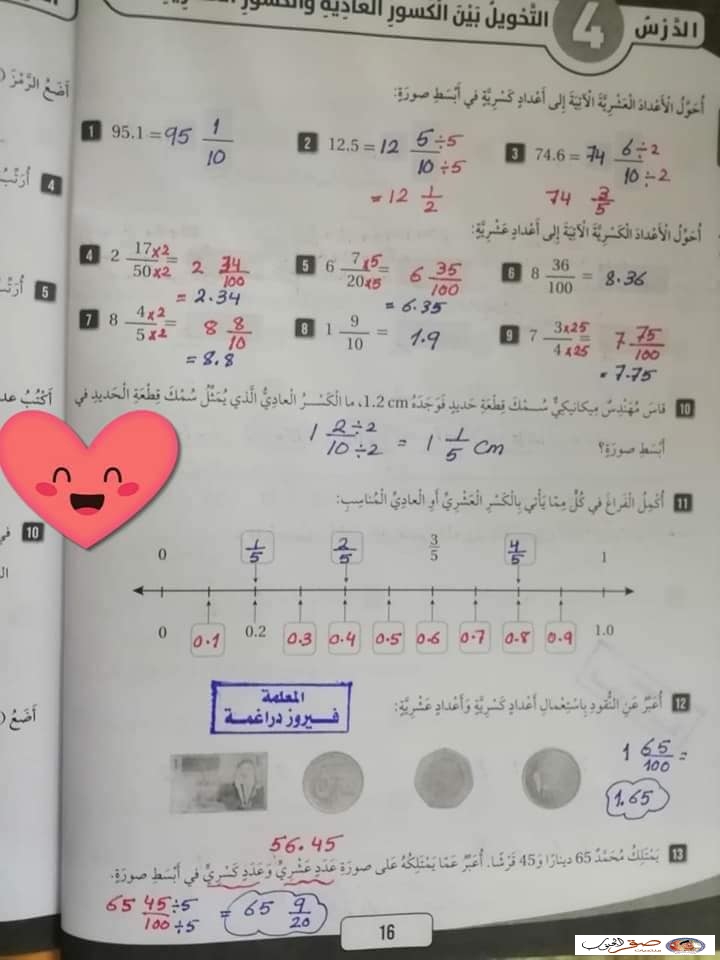 الدَّرْسُ 4 التَّحْويلُ بَيْنَ الْكُسورِ الْعادِيَّةِ وَالْكُسورِ
أُحَوِّلُ الْأَعْدادَ الْعَشْرِيَّةَ الْآتِيَةَ إِلى أَعْدادٍ كَسْرِيَّةٍ في أَبْسَطِ صورَةٍ:
1 95.1 = 95 1/10
2 12.5 = 12 5÷5/10÷5
= 12 1/2
3 74.6 = 74 6÷2/10÷2
74 3/5
أُحَوِّلُ الْأَعْدادَ الْكَسْرِيَّةَ الْآتِيَةَ إِلى أَعْدادٍ عَشْرِيَّةٍ:
4 2 17×2/50×2 = 2 34/100
= 2.34
5 6 7×5/20×5 = 6 35/100
= 6.35
6 8 36/100 = 8.36
7 8 4×2/5×2 = 8 8/10
= 8.8
8 1 9/10 = 1.9
9 7 3×25/4×25 = 7 75/100
= 7.75
10 قاسَ مُهَنْدِسٌ ميكانيكِيٌّ سُمْكَ قِطْعَةِ حَديدٍ فَوَجَدَهُ 1.2 cm، ما الْكَسْرُ الْعادِيُّ الَّذي يُمَثِّلُ سُمْكَ قِطْعَةِ الْحَديدِ في
أَبْسَطِ صورَةٍ؟
1 2÷2/10÷2 = 1 1/5 cm
11 أُكْمِلُ الْفَراغَ في كُلٍّ مِمّا يَأْتي بِالْكَسْرِ الْعَشْرِيِّ أَوِ الْعادِيِّ الْمُناسِبِ:
0 1/5 2/5 3/5 4/5 1
0 0.1 0.2 0.3 0.4 0.5 0.6 0.7 0.8 0.9 1.0
12 أُعَبِّرُ عَنِ النُّقودِ بِاسْتِعْمالِ أَعْدادٍ كَسْرِيَّةٍ وَأَعْدادٍ عَشْرِيَّةٍ:
المعلمة
فيروز دراغمة
1 65/100 =
1.65
56.45
13 يَمْتَلِكُ مُحَمَّدٌ 65 دينارًا وَ45 قِرْشًا. أُعَبِّرُ عَمّا يَمْتَلِكُهُ عَلى صورَةِ عَدَدٍ عَشْرِيٍّ وَعَدَدٍ كَسْرِيٍّ في أَبْسَطِ صورَةٍ.
65 45÷5/100÷5 = 65 9/20
16
أَضَعُ الرَّمْزَ
4
5
أَكْتُبُ
10 في
أَضَعُ